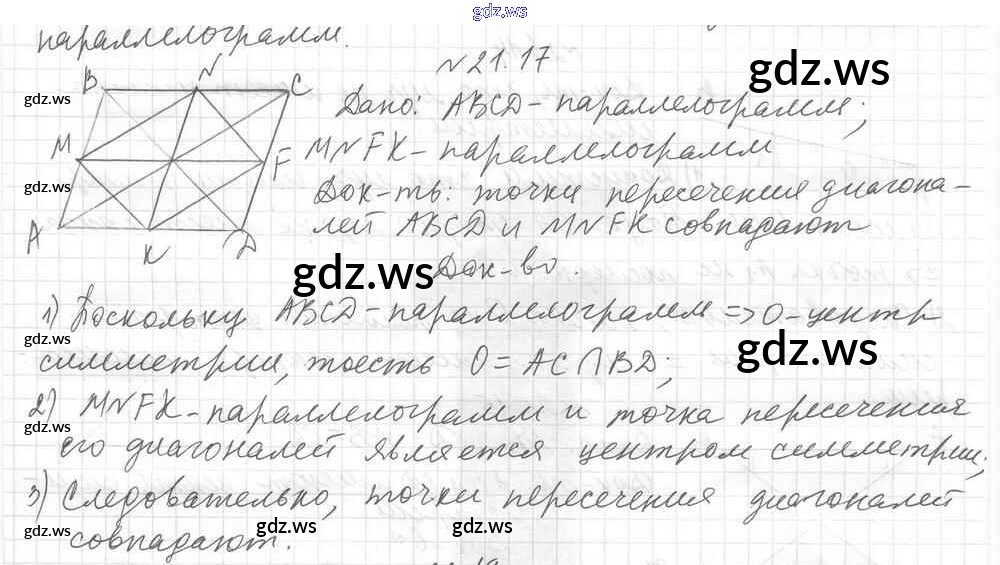 gdz.ws
параллелограмм.
№21.17
gdz.ws
B N C
gdz.ws
Дано: ABCD - параллелограмм;
M F
MNFK - параллелограмм
gdz.ws
Док-ть: точки пересечения диагона-
A K D
лей ABCD и MNFK совпадают
gdz.ws
Док-во:
1) Поскольку ABCD - параллелограмм => O - центр
gdz.ws
gdz.ws
симметрии, тоесть O = AC∩BD;
2) MNFK - параллелограмм и точка пересечения
gdz.ws
его диагоналей является центром симметрии;
3) Следовательно, точки пересечения диагоналей
gdz.ws
gdz.ws
gdz.ws
совпадают.